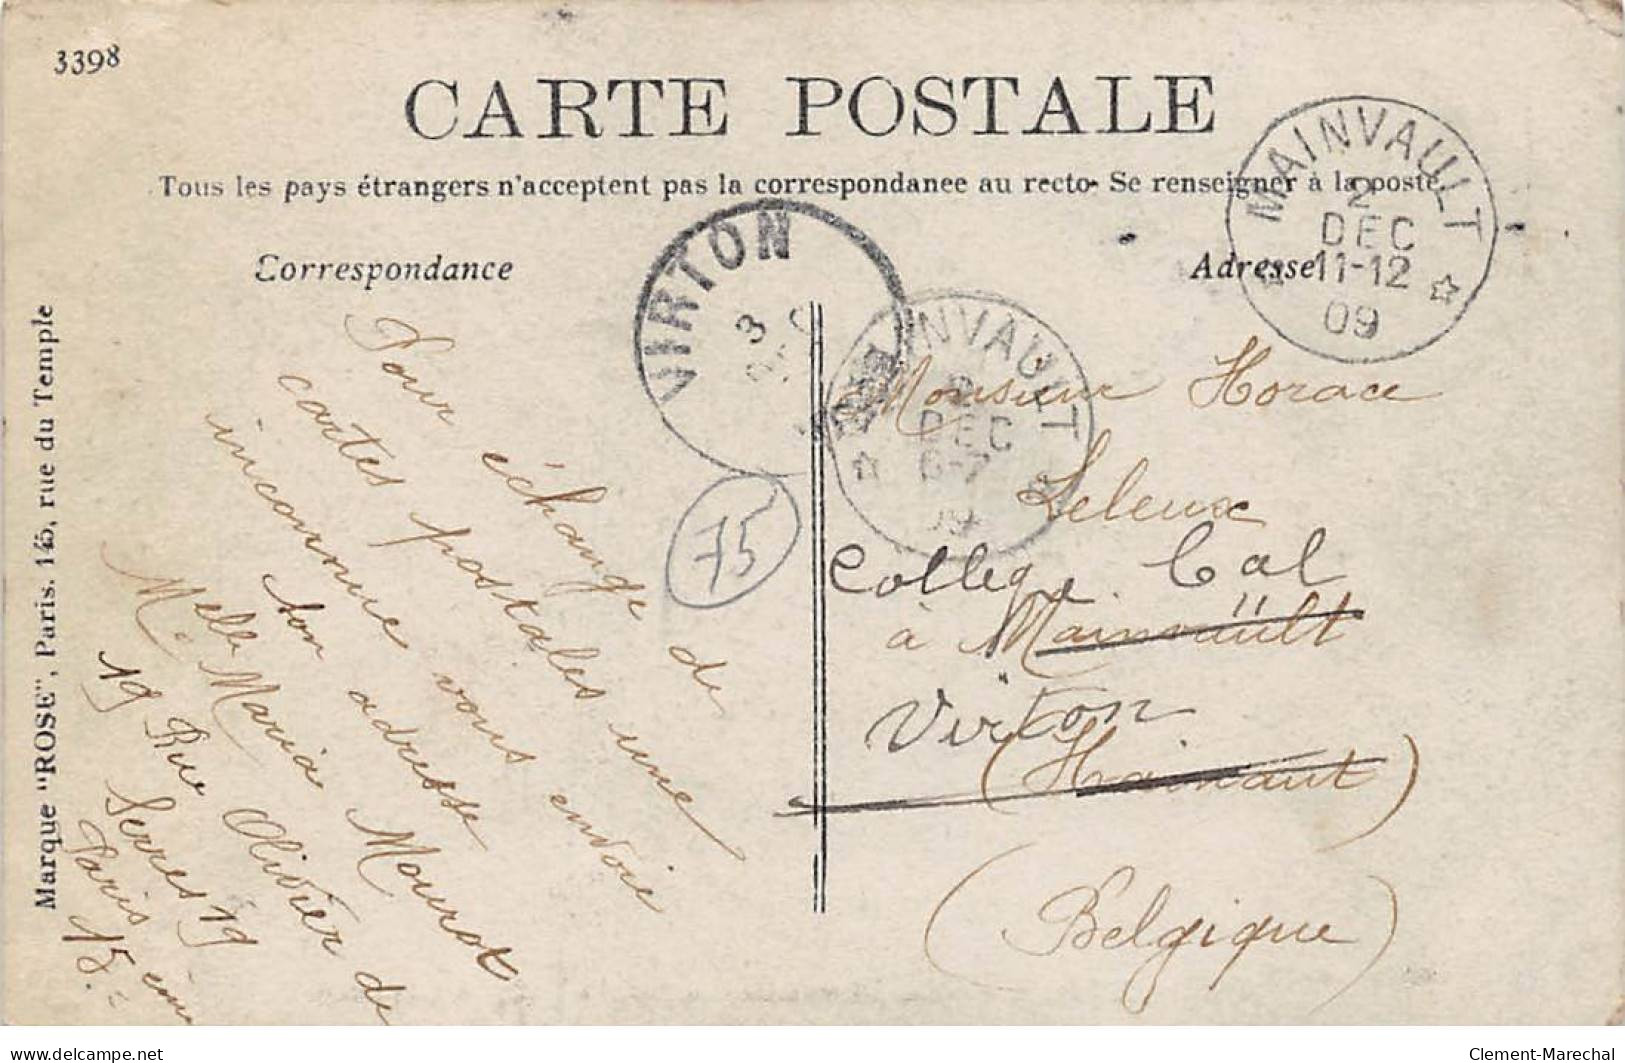 3398
CARTE POSTALE
Tous les pays étrangers n'acceptent pas la correspondanee au recto- Se renseigner à la poste.
Correspondance
Adresse
MAINVAULT
2
DEC
11-12
09
VIRTON
3
MAINVAULT
2
DEC
6-7
09
75
Marque "ROSE", Paris. 145, rue du Temple
Pour échange de
cartes postales une
inconnue vous envoie
son adresse
Melle Maria Mourot
19 Rue Olivier de
Serres 19
Paris
15 ème
Monsieur Horace
Leleux
College Cal
à Mainvault
Virton
(Hainaut)
(Belgique)
delcampe.net
Clement-Marechal